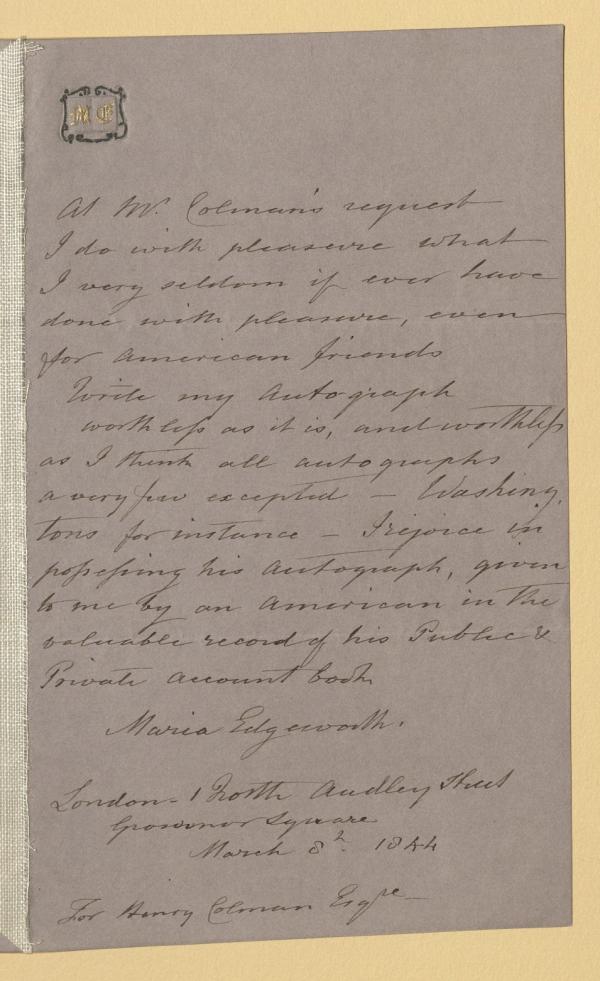 ME
At Mr. Colman's request
I do with pleasure what
I very seldom if ever have
done with pleasure, even
for American friends
Write my Autograph
worthless as it is, and worthless
as I think all autographs
a very few excepted – Washing,
tons for instance – I rejoice in
possessing his Autograph, given
to me by an American in the
valuable record of his Public &
Private Account book
Maria Edgeworth.
London – 1 North Audley Street
Grosvenor Square
March 8th. 1844
For Henry Colman Esqre